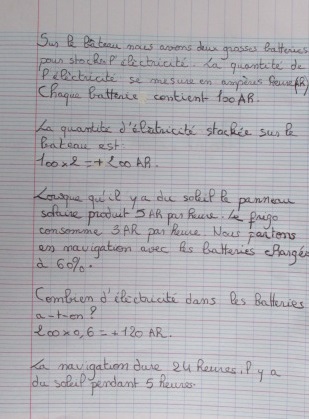 Sur le bateau nous avons deux grosses batteries
pour stocker l'électricité. La quantité de
l'électricité se mesure en ampères heure (AR)
Chaque batterie contient 100 AR.
La quantité d'électricité stockée sur le
bateau est
100 x 2 = + 200 AR.
Lorsque qu'il y a du soleil le panneau
solaire produit 5 AR par heure. Le frigo
consomme 3 AR par heure. Nous partons
en navigation avec les batteries chargées
à 60%.
Combien d'électricité dans les batteries
a-t-on ?
200 x 0,6 = + 120 AR.
La navigation dure 24 heures, il y a
du soleil pendant 5 heures.